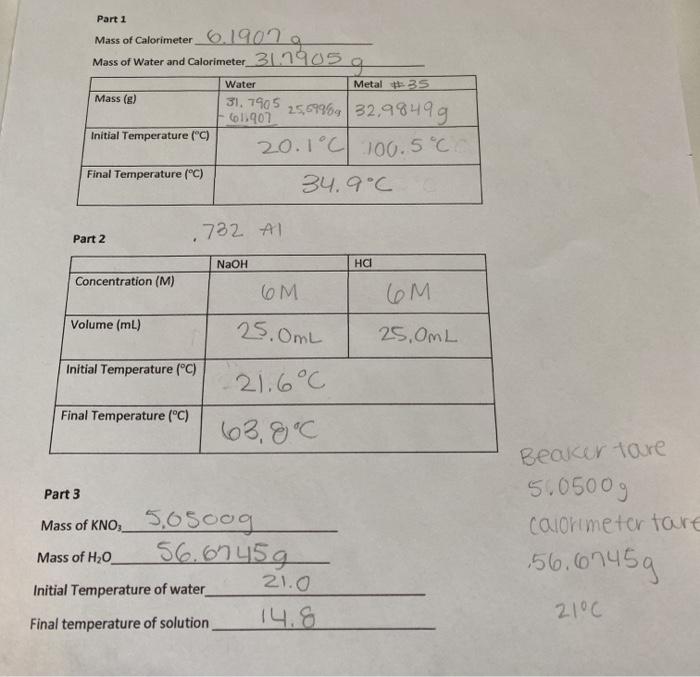 Part 1
Mass of Calorimeter 6.1907 g
Mass of Water and Calorimeter 31.7905 g
Water Metal #35
Mass (g) 31.7905 - 61.907 25.5998g 32.9849g
Initial Temperature (°C) 20.1°C 100.5°C
Final Temperature (°C) 34.9°C
Part 2 .732 Al
NaOH HCl
Concentration (M) 6M 6M
Volume (mL) 25.0mL 25.0mL
Initial Temperature (°C) 21.6°C
Final Temperature (°C) 63.8°C
Beaker tare
5.0500g
calorimeter tare
.56.6745g
21°C
Part 3
Mass of KNO₃ 5.0500g
Mass of H₂O 56.6745g
Initial Temperature of water 21.0
Final temperature of solution 14.8